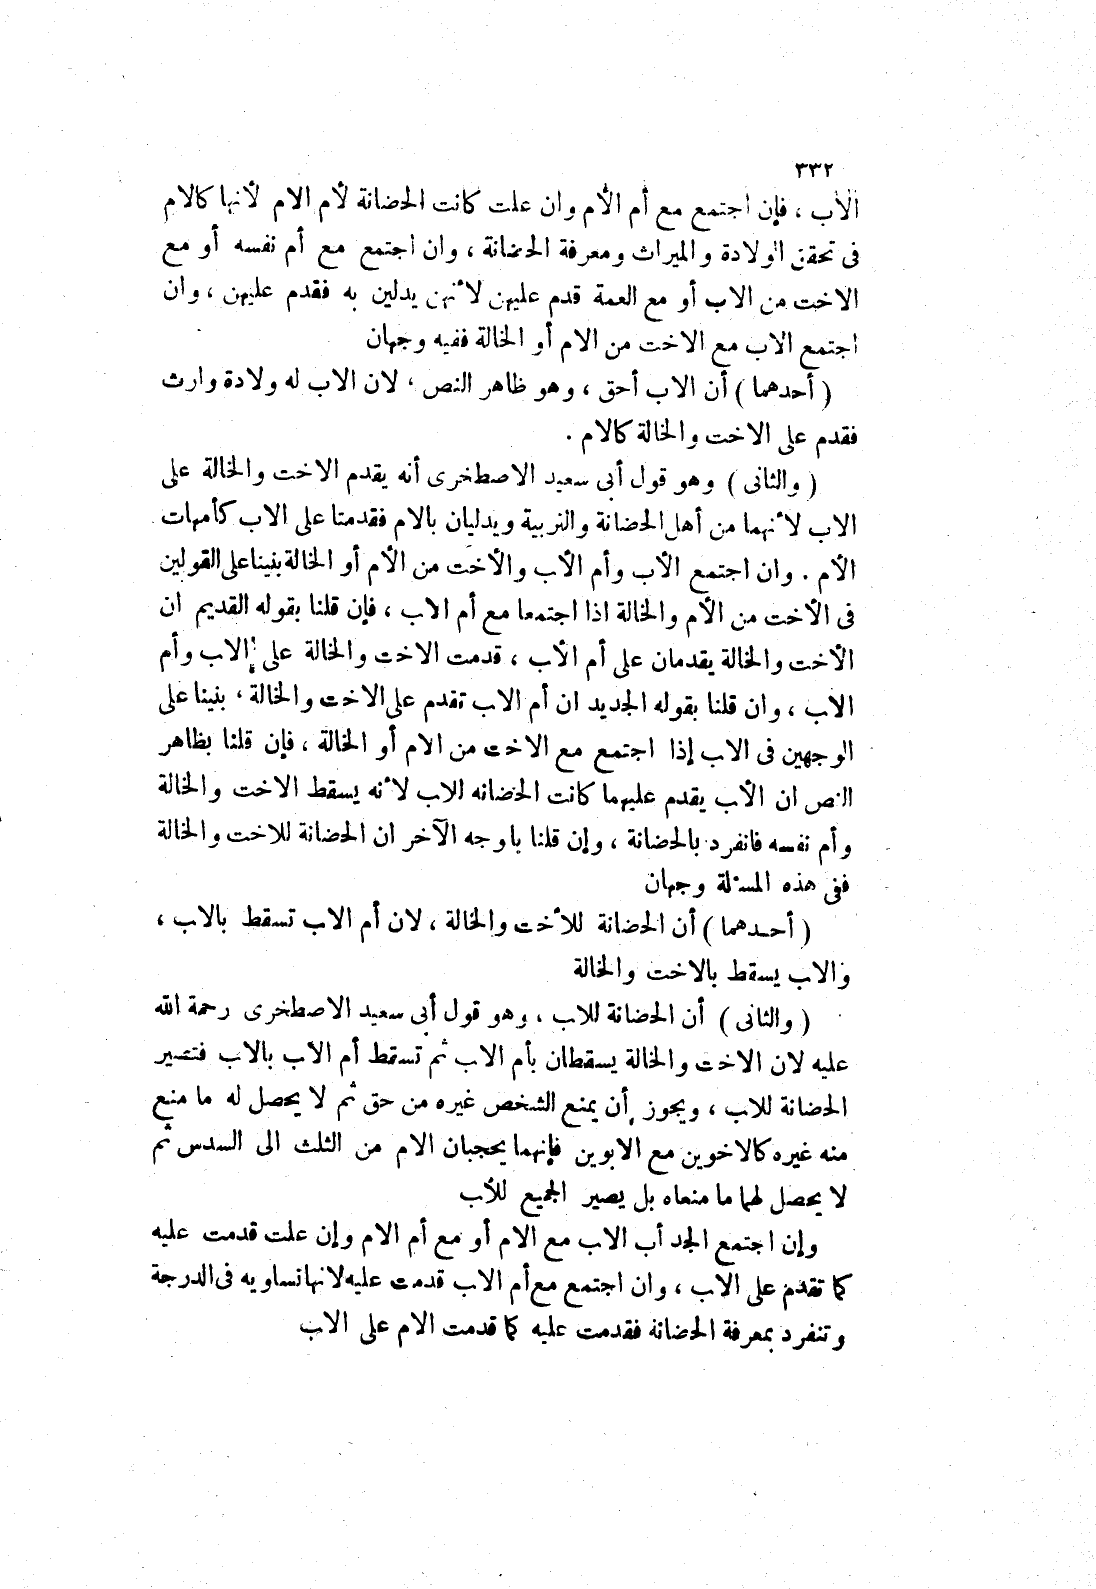 ٣٣٢
الأب ، فإن اجتمع مع أم الأم وان علت كانت الحضانة لأم الام لأنها كالام
فى تحقق الولادة والميراث ومعرفة الحضانة ، وان اجتمع مع أم نفسه أو مع
الاخت من الاب أو مع العمة قدم عليهن لأنهن يدلين به فقدم عليهن ، وان
اجتمع الاب مع الاخت من الام أو الخالة ففيه وجهان
( أحدهما ) أن الاب أحق ، وهو ظاهر النص ، لان الاب له ولادة وارث
فقدم على الاخت والخالة كالام .
( والثانى ) وهو قول أبى سعيد الاصطخرى أنه يقدم الاخت والخالة على
الاب لأنهما من أهل الحضانة والتربية ويدليان بالام فقدمتا على الاب كأمهات
الأم . وان اجتمع الأب وأم الأب والأخت من الأم أو الخالة بنينا على القولين
فى الأخت من الأم والخالة اذا اجتمعا مع أم الاب ، فإن قلنا بقوله القديم ان
الأخت والخالة يقدمان على أم الأب ، قدمت الاخت والخالة على الاب وأم
الاب ، وان قلنا بقوله الجديد ان أم الاب تقدم على الاخت والخالة ، بنينا على
الوجهين فى الاب إذا اجتمع مع الاخت من الام أو الخالة ، فإن قلنا بظاهر
النص ان الأب يقدم عليهما كانت الحضانه للاب لأنه يسقط الاخت والخالة
وأم نفسه فانفرد بالحضانة ، وإن قلنا باوجه الآخر ان الحضانة للاخت والخالة
ففى هذه المسئلة وجهان
( أحدهما ) أن الحضانة للأخت والخالة ، لان أم الاب تسقط بالاب ،
والاب يسقط بالاخت والخالة
( والثانى ) أن الحضانة للاب ، وهو قول أبى سعيد الاصطخرى رحمة الله
عليه لان الاخت والخالة يسقطان بأم الاب ثم تسقط أم الاب بالاب فتصير
الحضانة للاب ، ويجوز أن يمنع الشخص غيره من حق ثم لا يحصل له ما منع
منه غيره كالاخوين مع الابوين فإنهما يحجبان الام من الثلث الى السدس ثم
لا يحصل لهما ما منعاه بل يصير الجميع للأب
وإن اجتمع الجد أب الاب مع الام أو مع أم الام وإن علت قدمت عليه
كما تقدم على الاب ، وان اجتمع مع أم الاب قدمت عليه لانها تساويه فى الدرجة
وتنفرد بمعرفة الحضانة فقدمت عليه كما قدمت الام على الاب